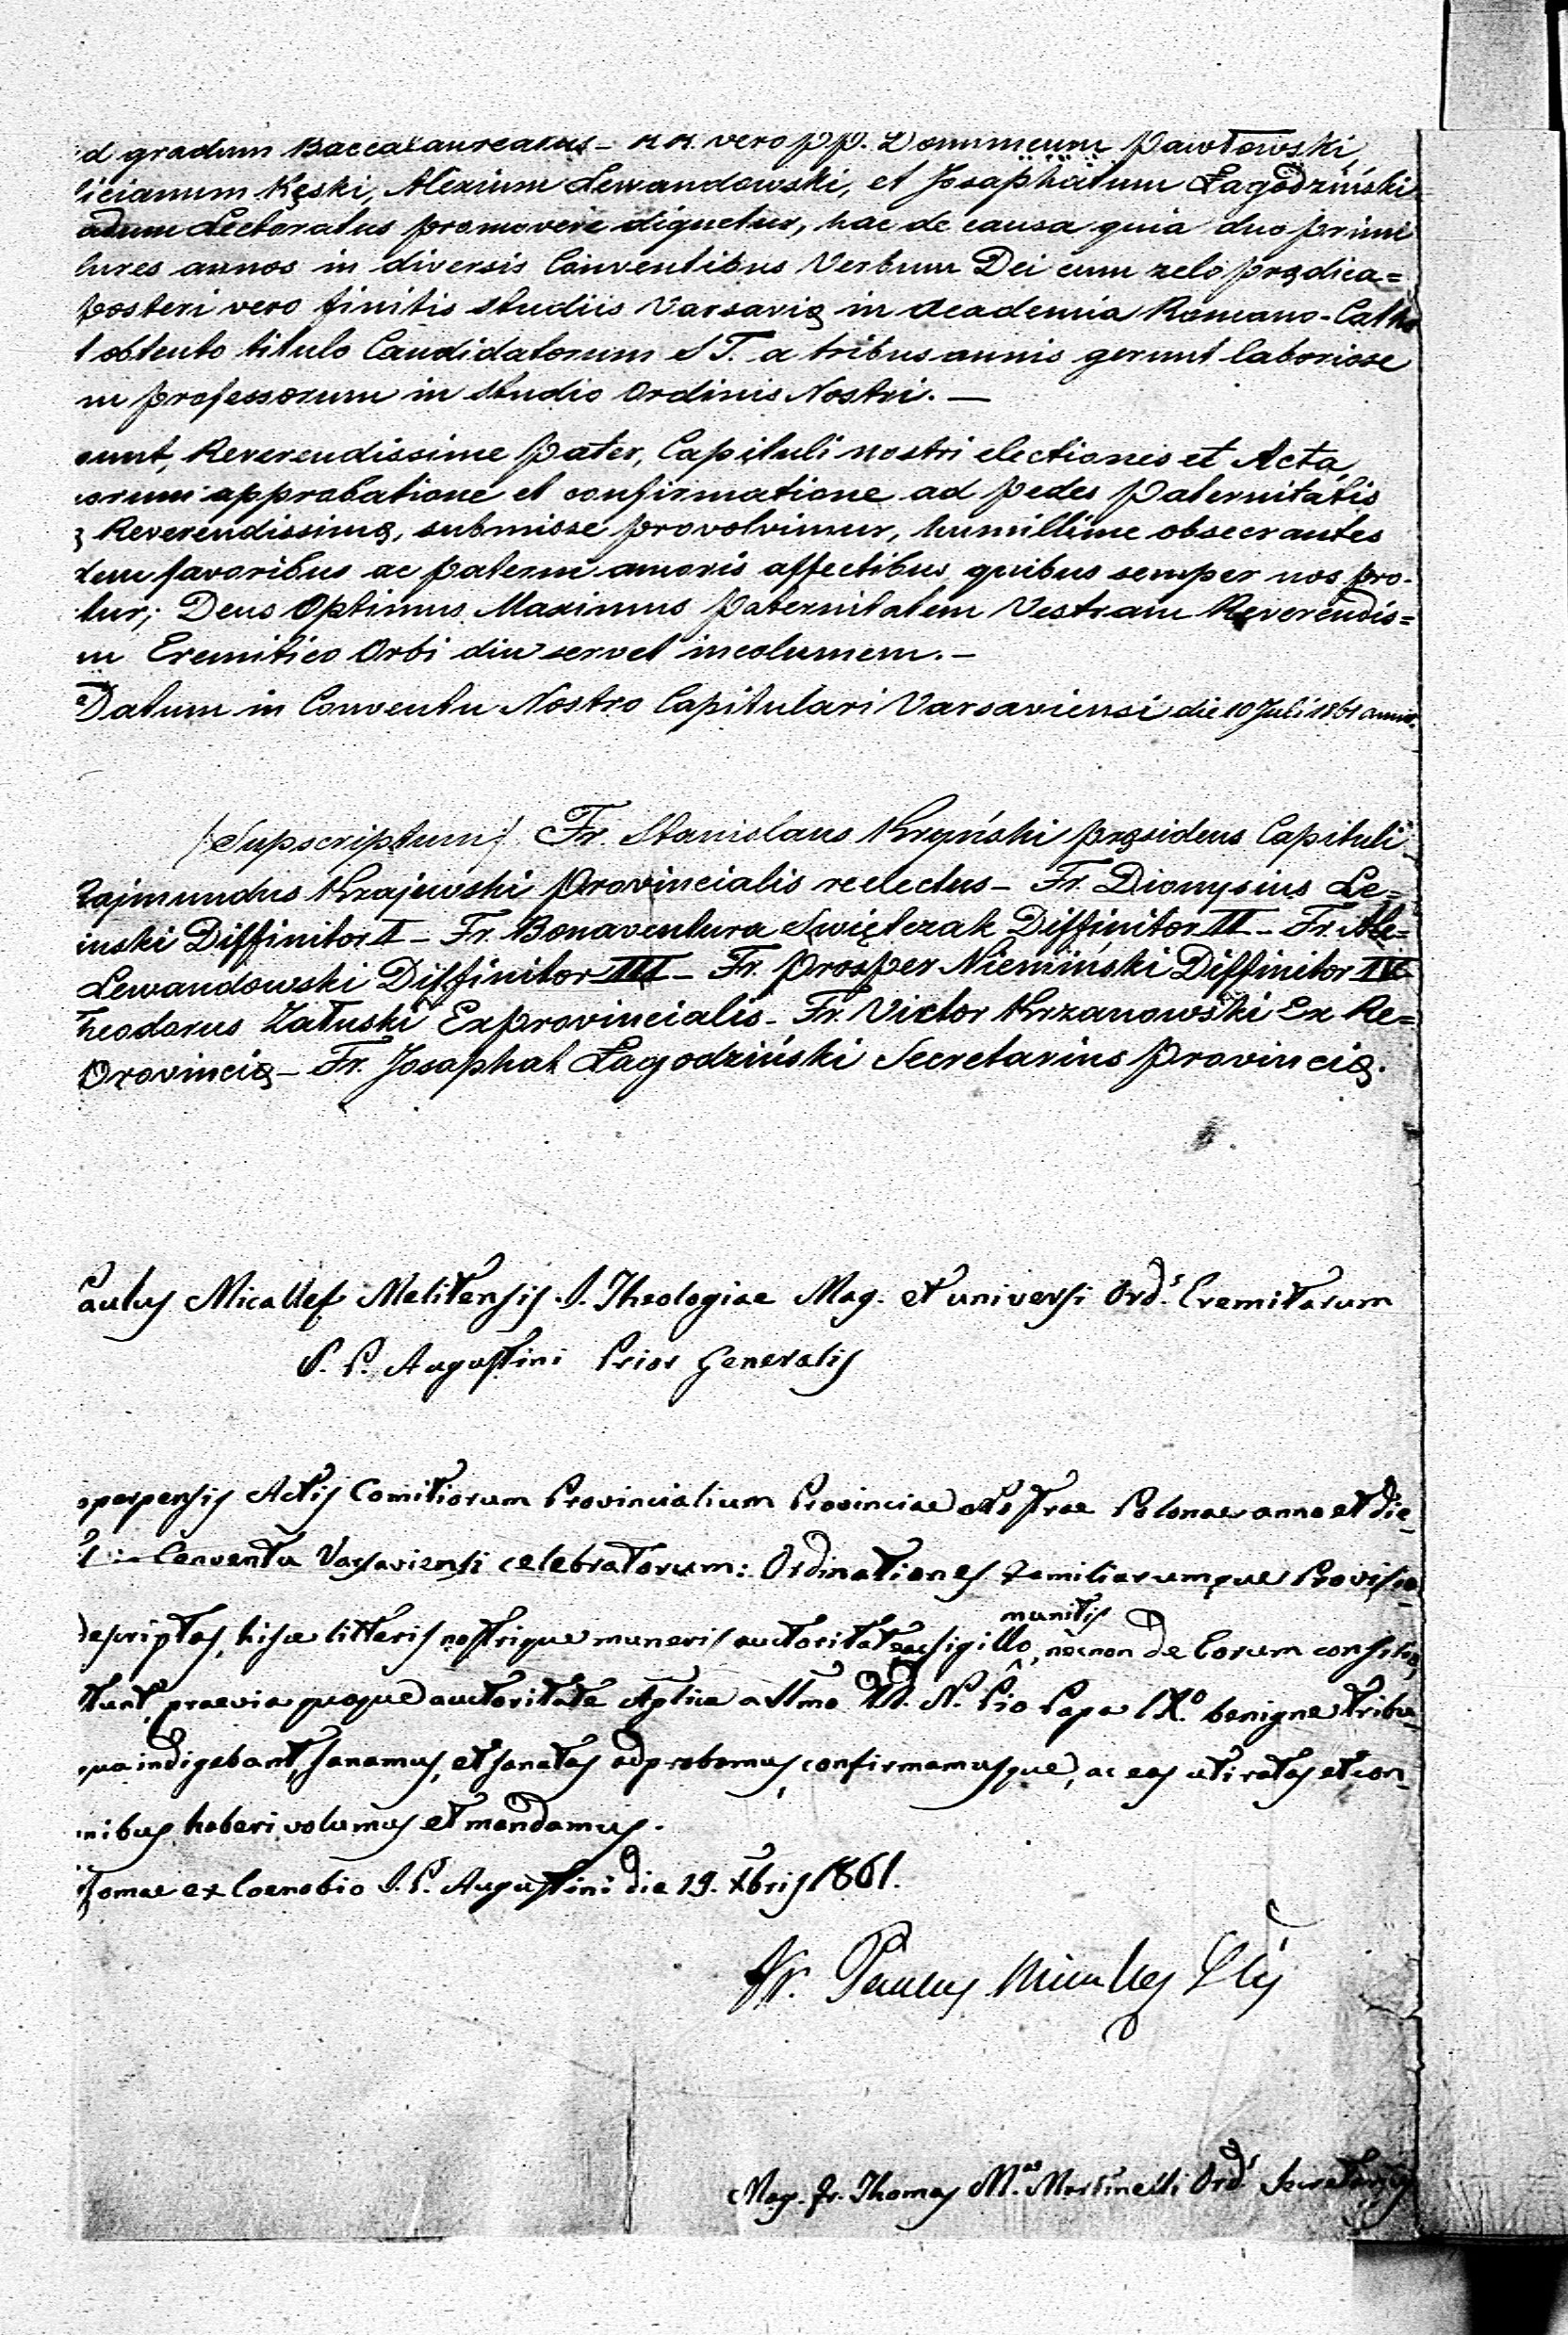 d gradum Baccalaureatus – RR. vero PP. Dominicum Pawłowski,
licianum Kęski, Alexium Lewandowski, et Josaphatum Łagodziński
adum Lectoratus promovere dignetur, hac de causa quia duo primi
lures annos in diversis Conventibus Verbum Dei cum zelo prędica=
posteri vero finitis studiis Varsavię in Academia Romano-Catho
t obtento titulo Candidatorum S T. a tribus annis gerunt laboriose
m professorum in studio Ordinis Nostri. —
sunt, Reverendissime Pater, Capituli nostri electiones et Acta,
uorum approbatione et confirmatione ad pedes Paternitatis
ę Reverendissimę, submisse provolvimur, humillime obsecrantes
dem favoribus ac paterni amoris affectibus quibus semper nos pro-
tur; Deus Optimus Maximus Paternitatem Vestram Reverendis=
m Eremitico Orbi diu servet incolumem. –
Datum in Conventu Nostro Capitulari Varsaviensi die 10 Juli 1861 anni.
/Supscriptum/ Fr. Stanislaus Kryński pręsidens Capituli
Rajmundus Krajewski Provincialis reelectus – Fr. Dionysius Le=
inski Diffinitor I – Fr. Bonaventura Święczak Diffinitor II – Fr. Ale=
Lewandowski Diffinitor III – Fr. Prosper Niemiński Diffinitor IV
Theodorus Załuski Exprovincialis – Fr. Victor Krzanowski Ex Re=
Provincię – Fr. Josaphat Łagodziński Secretarius Provincię.
Paulus Micallef Melitensis S. Theologiae Mag. et universi Ord.s Eremitarum
S. P. Augustini Prior Generalis
operpensis Actis Comitiorum Provincialium Provinciae Nostrae Polonae anno et die
in Conventu Varsaviensi celebratorum: Ordinationes Familiarumque Provisio
descriptas, hisce litteris nostrique muneris auctoritate ac sigillo munitis, necnon de Eorum consilio
tunt, praevia quoque auctoritate Aplica a SSmo D. N. Pio Papa IX.o benigne tribu
qua indigebant, sanamus, et sanatas adprobamus, confirmamusque, ac eas uti ratas et con
nibus haberi volumus et mandamus.
Romae ex Coenobio S. P. Augustini die 19. Xbris 1861.
Fr. Paulus Micallef
Mag. Fr. Thomas M.as Martinelli Ord.s Secretarius